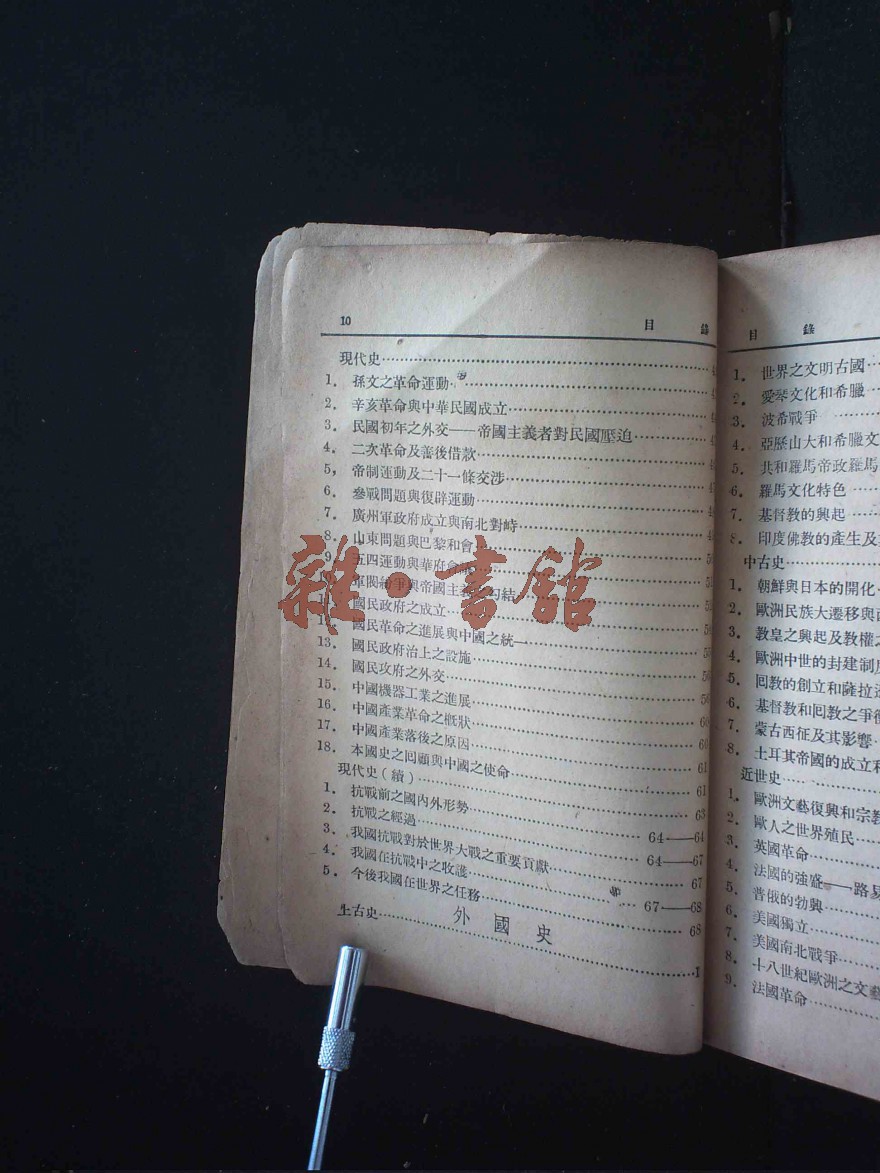 10 目 錄
現代史
1. 孫文之革命運動
2. 辛亥革命與中華民國成立
3. 民國初年之外交——帝國主義者對民國壓迫
4. 二次革命及善後借款
5, 帝制運動及二十一條交涉
6. 參戰問題與復辟運動
7. 廣州軍政府成立與南北對峙
8. 山東問題與巴黎和會
9. 五四運動與華府會議
軍閥紛爭與帝國主義 勾結
國民政府之成立
國民革命之進展與中國之統一
13. 國民政府治上之設施
14. 國民攻府之外交
15. 中國機器工業之進展
16. 中國產業革命之概狀 60
17. 中國產業落後之原因 60
18. 本國史之回顧與中國之使命 61
現代史(續) 61
1. 抗戰前之國內外形勢 63
2. 抗戰之經過 64——64
3. 我國抗戰對於世界大戰之重要貢獻 64——67
4. 我國在抗戰中之收護 67
5. 今後我國在世界之任務 67——68
外國史 68
上古史 1
目 錄
1. 世界之文明古國
2. 愛琴文化和希臘
3. 波希戰爭
4. 亞歷山大和希臘文
5. 共和羅馬帝政羅馬
6. 羅馬文化特色
7. 基督教的興起
8. 印度佛教的產生及
中古史
1. 朝鮮與日本的開化
2. 歐洲民族大遷移與
3. 教皇之興起及教權之
4. 歐洲中世的封建制度
5. 回教的創立和薩拉
6. 基督教和回教之爭衡
7. 蒙古西征及其影響
8. 土耳其帝國的成立和
近世史
1. 歐洲文藝復興和宗教
2. 歐人之世界殖民
3. 英國革命
4. 法國的強盛——路易
5. 普俄的勃興
6. 美國獨立
7. 美國南北戰爭
8. 十八世紀歐洲之文藝
9. 法國革命
雜·書館